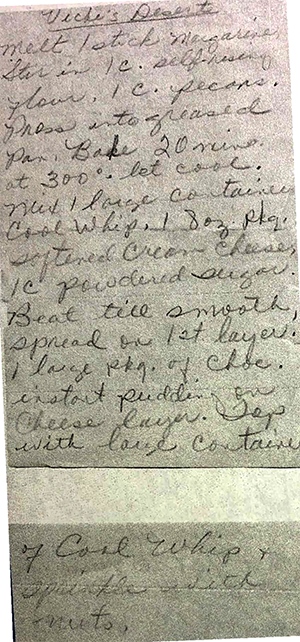 Vicki's Deserte
Melt 1 stick margarine,
Stir in 1 c. self-rising
flour, 1 c. pecans.
Press into greased
pan. Bake 20 mins.
at 300°. let cool.
Mix 1 large container
Cool Whip, 1 8oz. pkg.
softened Cream Cheese,
1c powdered sugar.
Beat till smooth,
spread on 1st layer.
1 large pkg. of choc.
instant pudding on
Cheese layer. Top
with large containe
of Cool Whip +
sprinkle with
nuts.